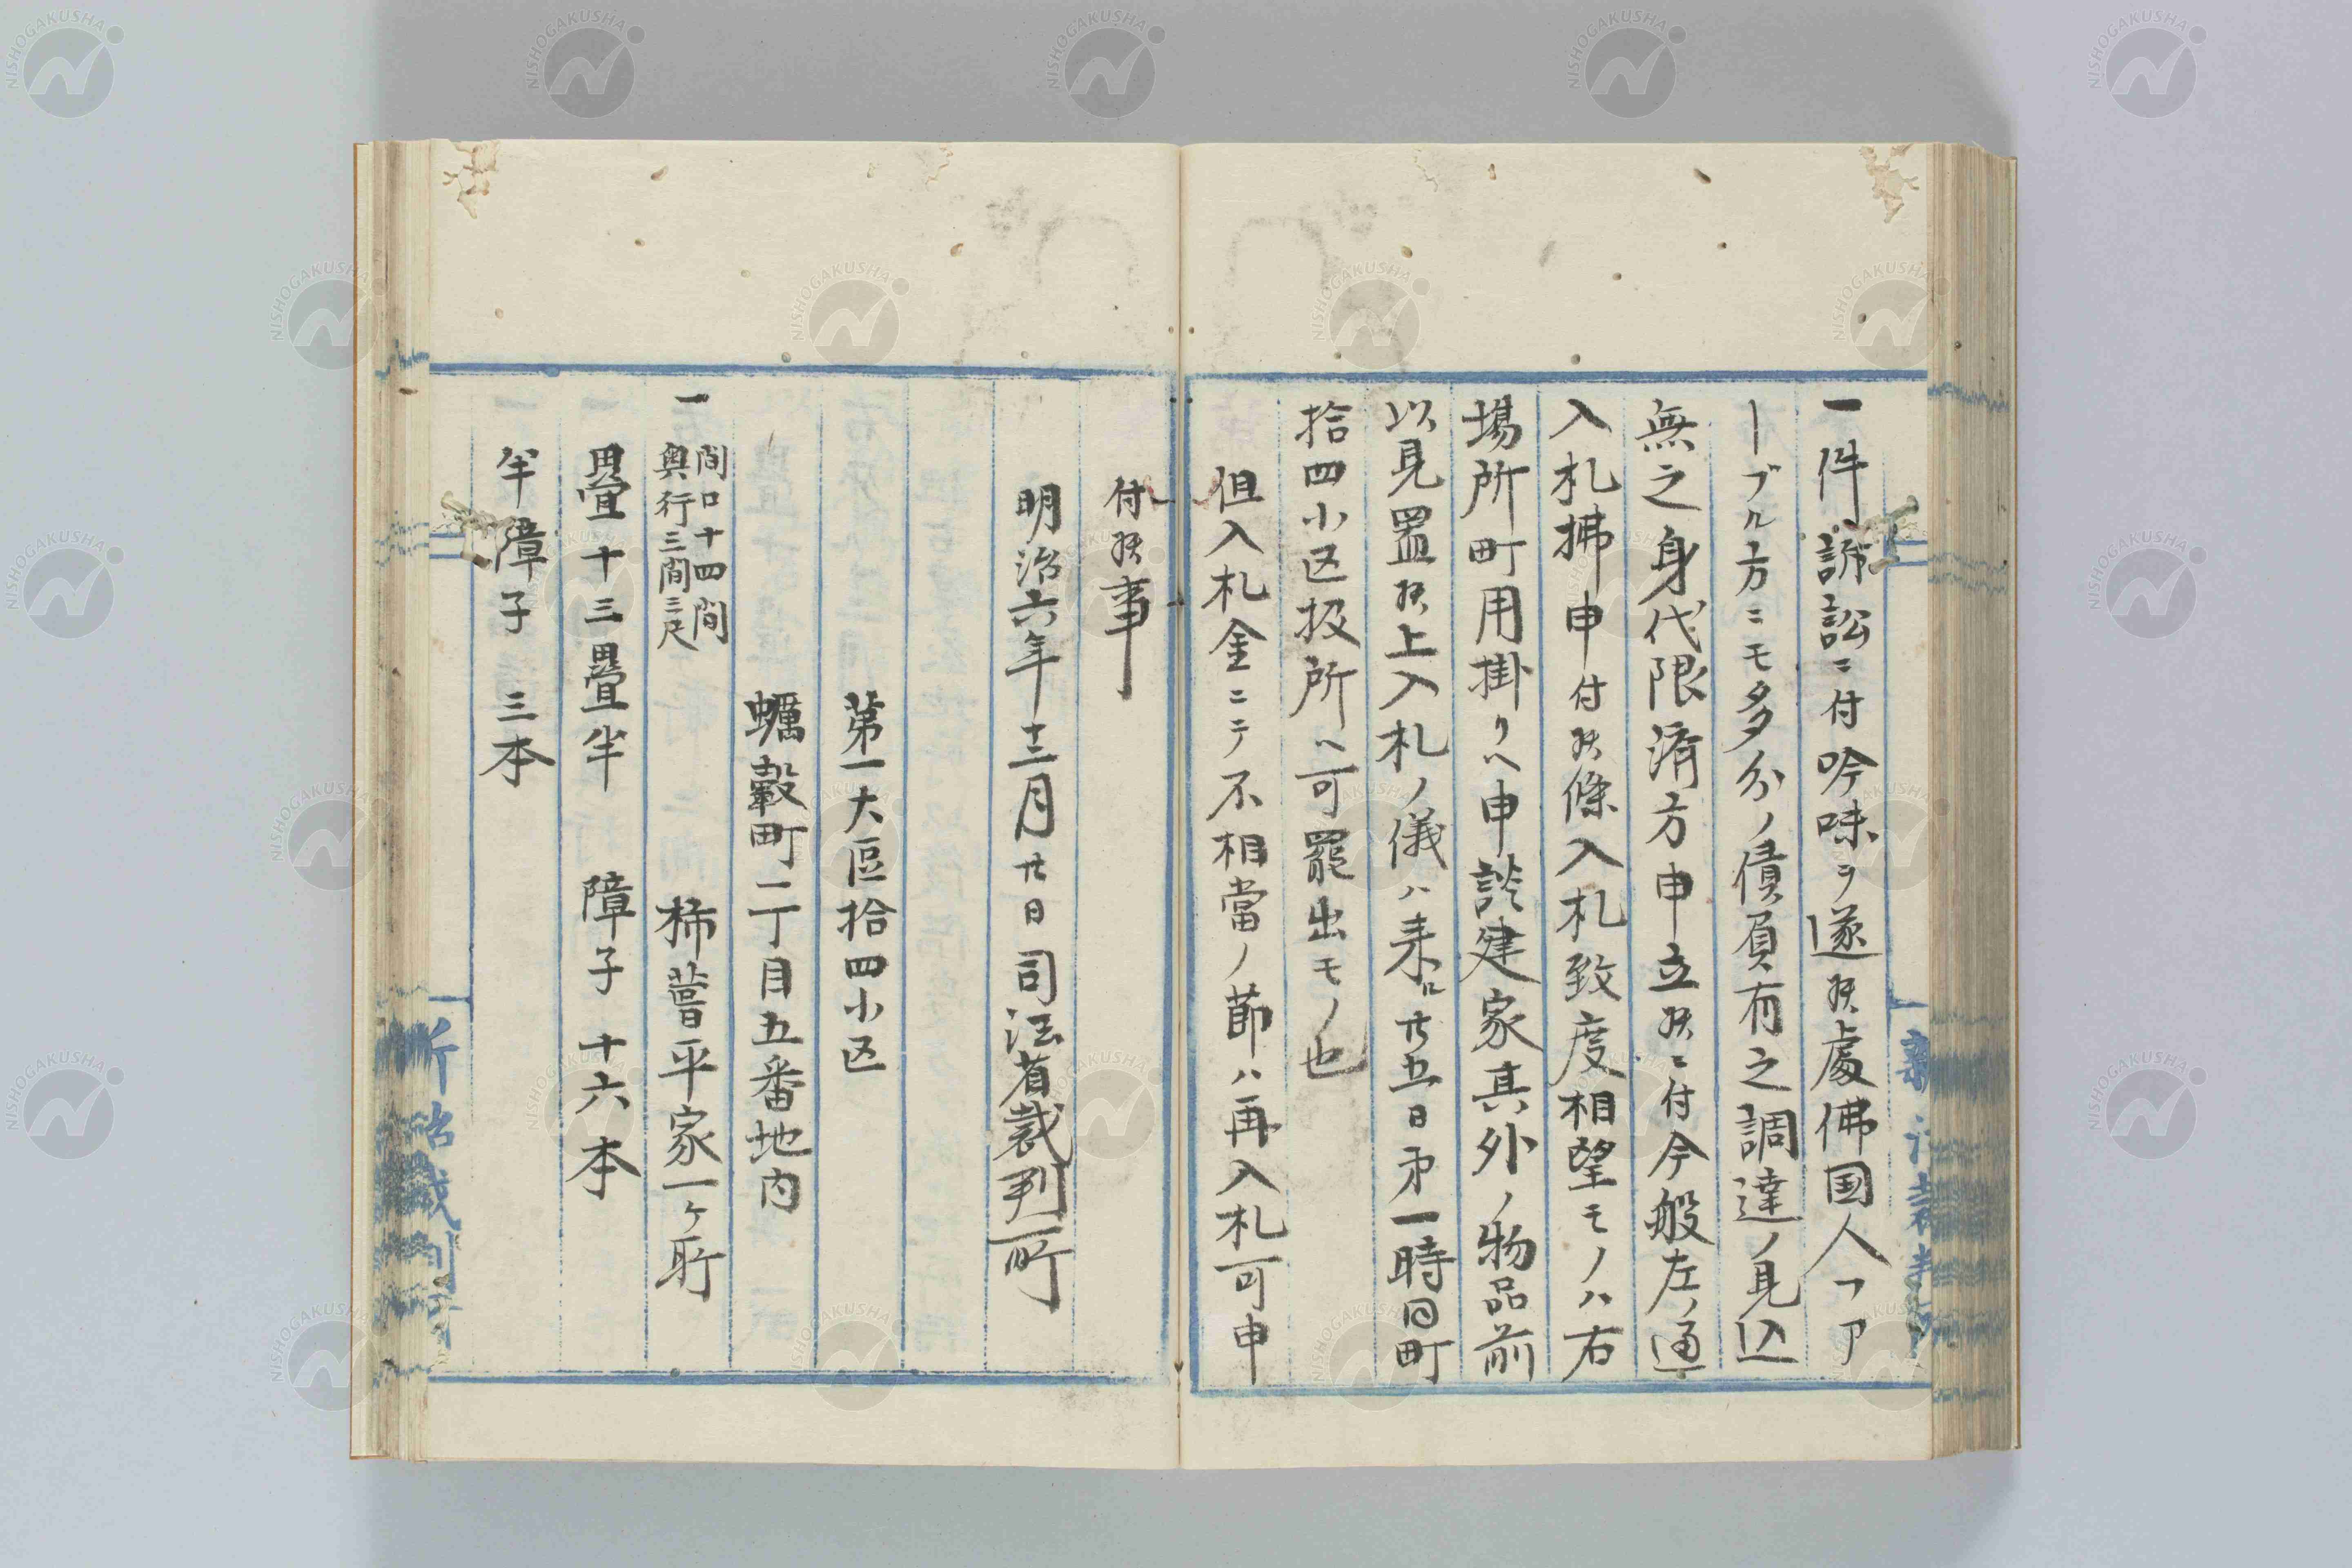 一件訴訟ニ付吟味ヲ遂候處佛国人フア
ーブル方ニモ多分ノ債負有之調達ノ見込
無之身代限済方申立候ニ付今般左ノ通
入札拂申付候條入札致度相望モノハ右
場所町用掛リヘ申談建家其外ノ物品前
以見置候上入札ノ儀ハ来ル廿五日第一時同町
拾四小区扱所ヘ可罷出モノ也
但入札金ニテ不相當ノ節ハ再入札可申
付候事
明治六年十二月廿日司法省裁判所
第一大區拾四小区
蠣殻町二丁目五番地内
一
間口十四間
奥行三間三尺
柿葺平家一ケ所
畳十三畳半 障子十六本
半障子 三本
NISHOGAKUSHA